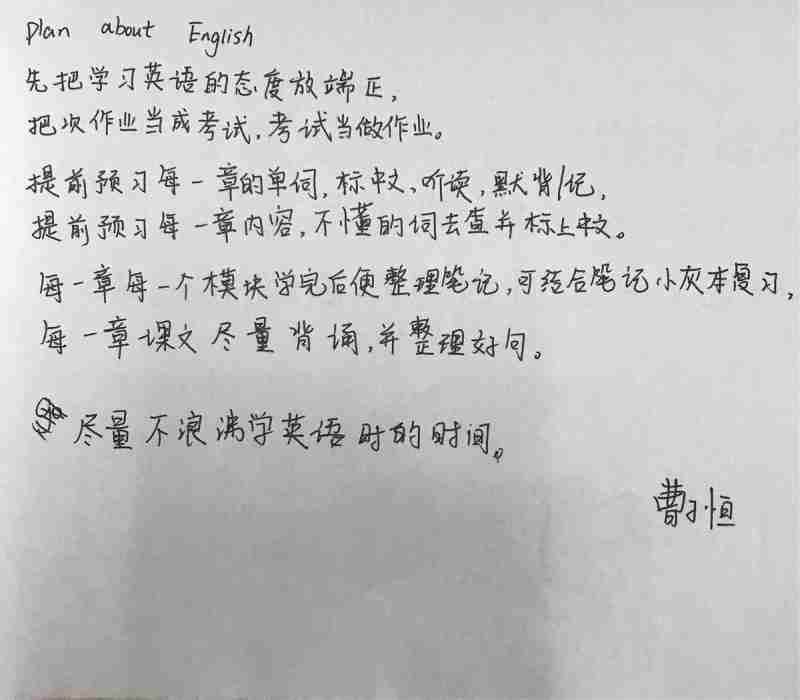 plan about English
先把学习英语的态度放端正,
把次作业当成考试,考试当做作业。
提前预习每一章的单词,标中文、听读,默背/记,
提前预习每一章内容,不懂的词去查并标上中文。
每一章每一个模块学完后便整理笔记,可结合笔记小灰本复习,
每一章课文尽量背诵,并整理好句。
尽量不浪满学英语时的时间。
曹子恒